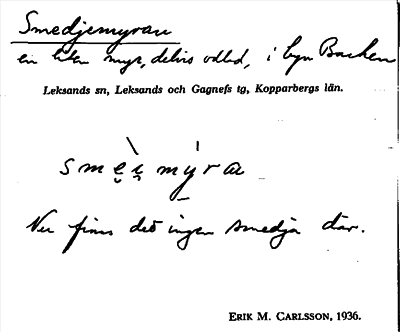 Smedjemyran
en liten myr, delvis odlad, i byn Backen
Leksands sn, Leksands och Gagnefs tg, Kopparbergs län.
Nu finns det ingen smedja där.
ERIK M. CARLSSON, 1936.